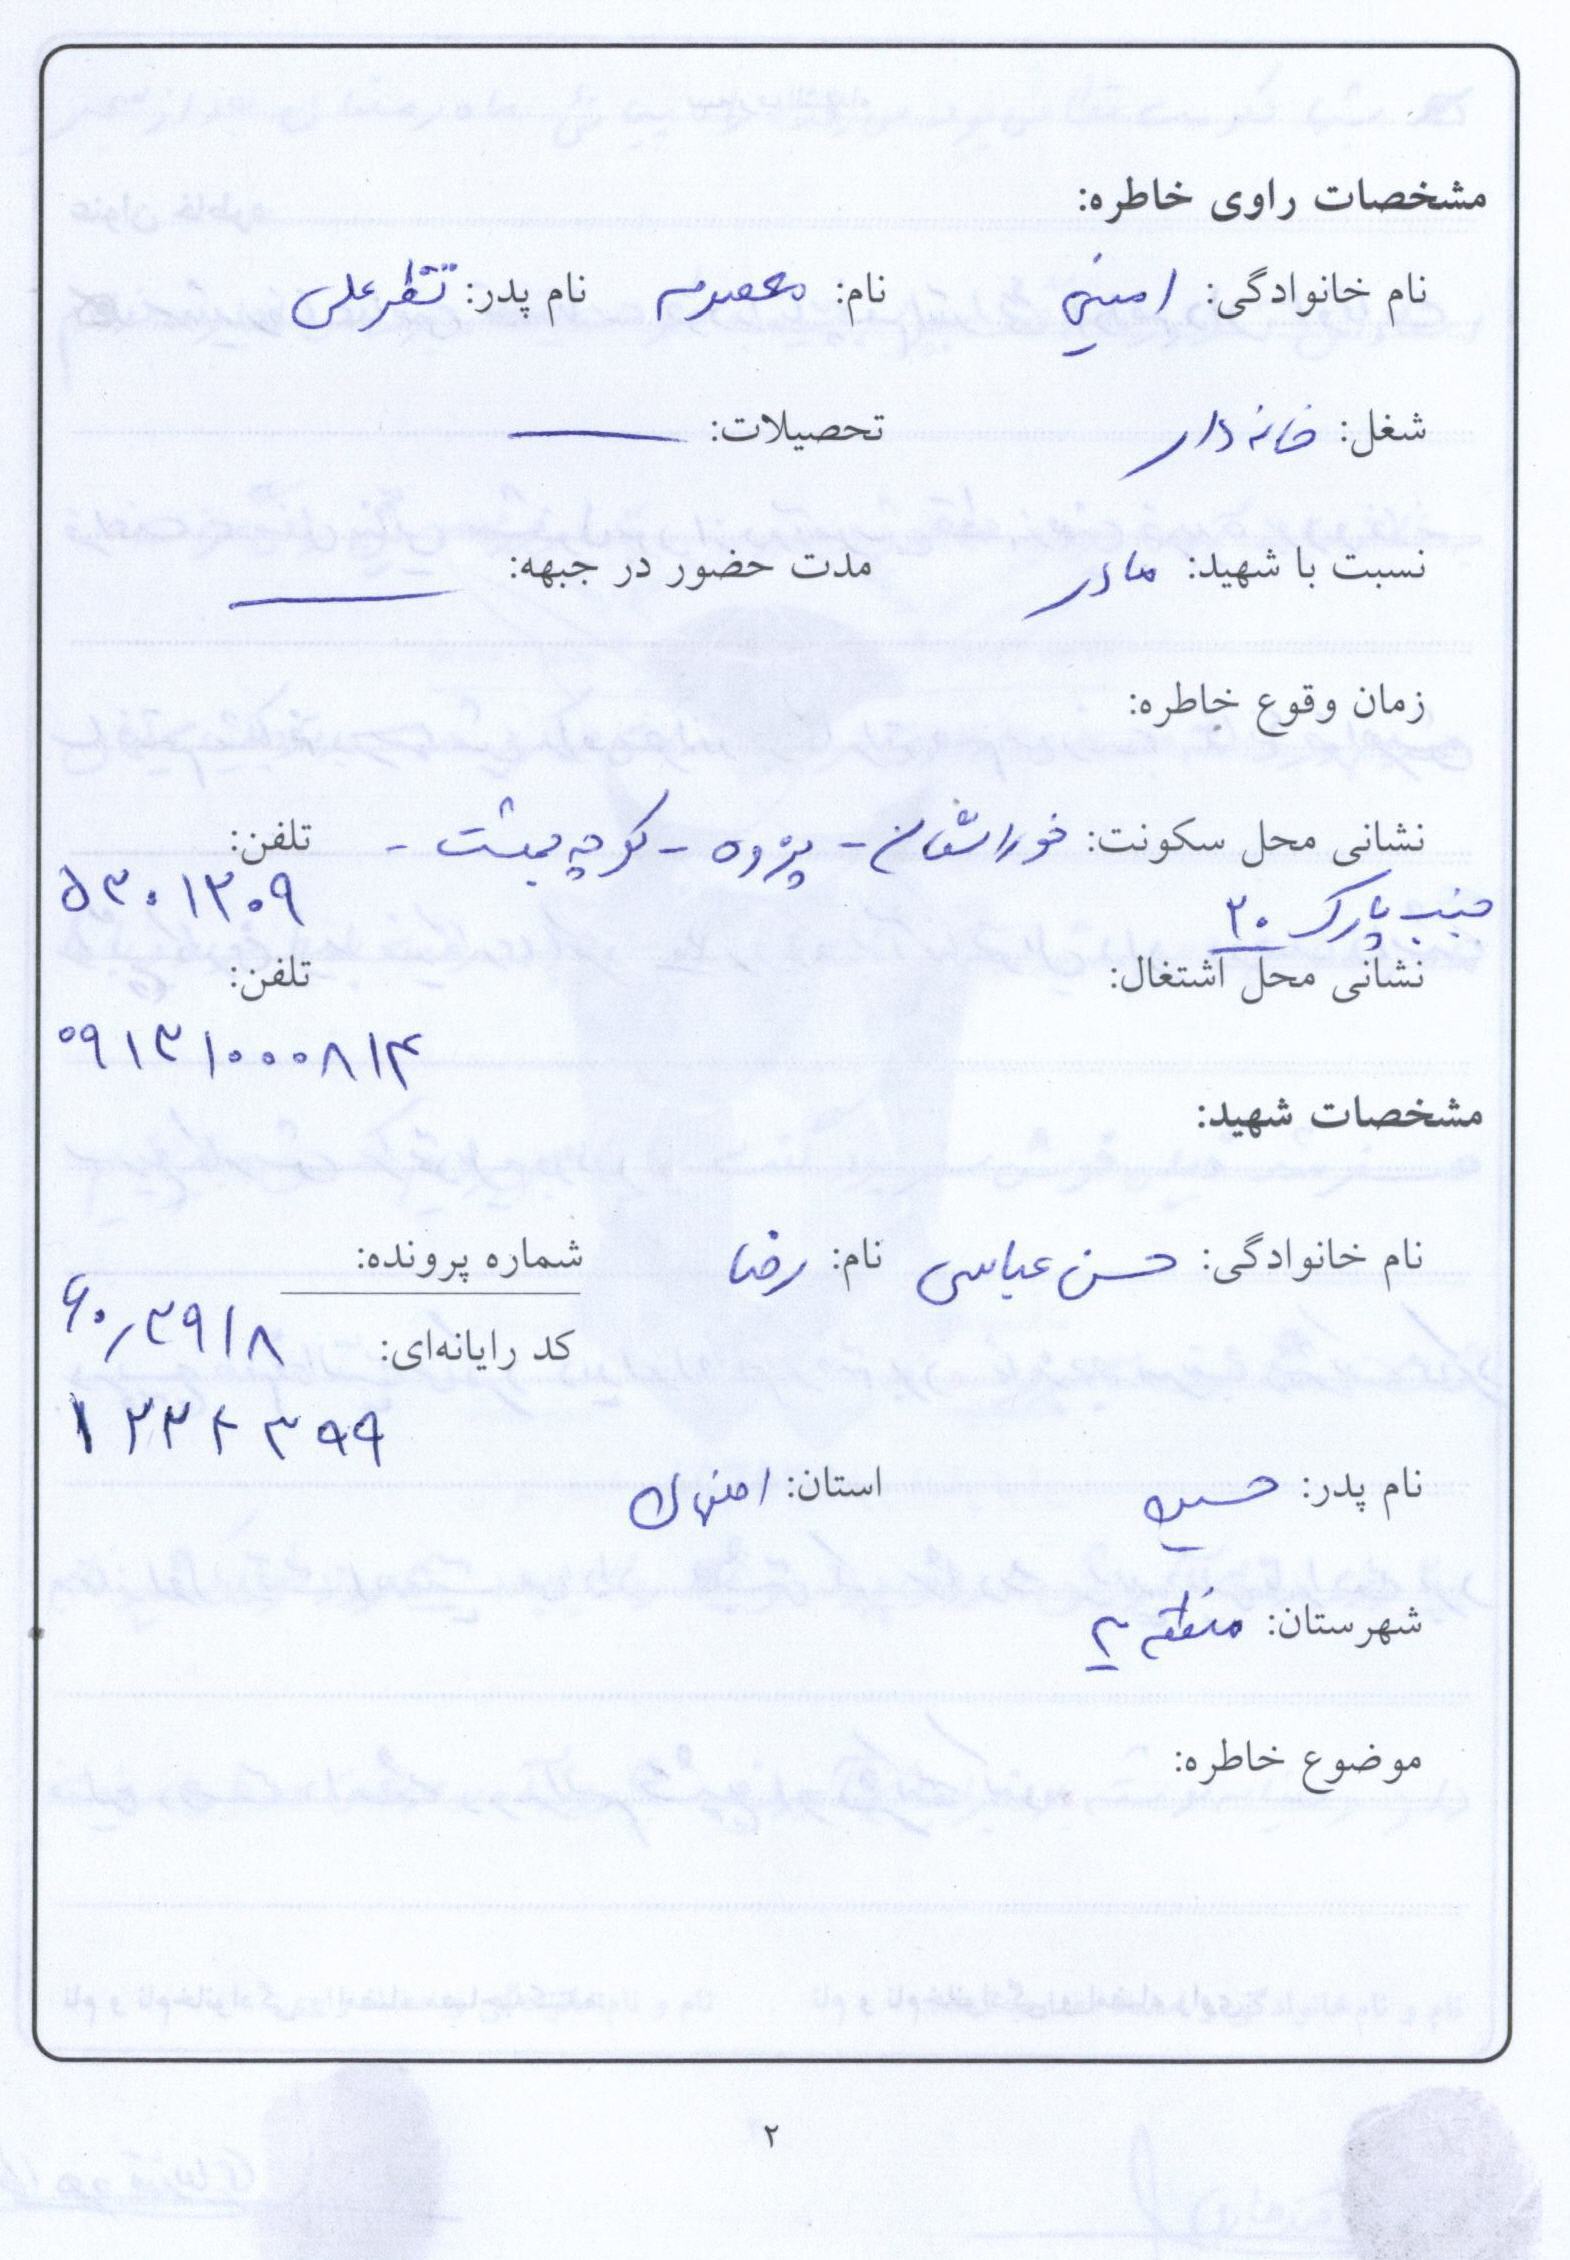 مشخصات راوی خاطره:
نام خانوادگی: امینی نام: معصومه نام پدر:
شغل: خانه دار تحصیلات: ـــــ
نسبت با شهید: مادر مدت حضور در جبهه: ـــــ
زمان وقوع خاطره:
نشانی محل سکونت: خوراسگان - پزوه - کوچه بهشت - تلفن:
جنب پارک ۲۰ ۵۳۰۱۳۰۹
نشانی محل اشتغال: تلفن:
۰۹۱۳۱۰۰۰۸۱۴
مشخصات شهید:
نام خانوادگی: حسن عباسی نام: رضا شماره پرونده:
۶۰٫۳۹۱۸
کد رایانه‌ای:
نام پدر: حسین استان: اصفهان
شهرستان: منطقه ۲
موضوع خاطره:
۲